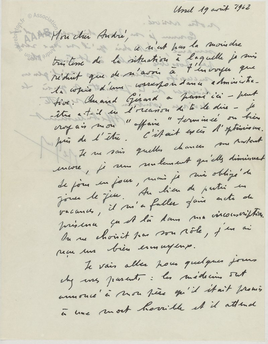 Ussel 19 août 1942
Mon cher André,
ce n'est pas la moindre
tristesse de la situation à laquelle je suis
réduit que de n'avoir à t'envoyer que
la copie d'une correspondance administra-
tive. Quand Gérard a passé ici – peut
être a-t-il eu l'occasion de te le dire – je
croyais mon "affaire" terminée ou bien
près de l'être. C'était excès d'optimisme.
Je ne sais quelles chances me restent
encore, je sens seulement qu'elles diminuent
de jour en jour, mais je suis obligé de
jouer le jeu. Au lieu de partir en
vacances, il m'a fallu faire acte de
présence çà et là dans ma circonscription.
On ne choisit pas son rôle, j'en ai
reçu un bien ennuyeux.
Je vais aller pour quelques jours
chez mes parents : les médecins ont
annoncé à mon père qu'il était promis
à une mort horrible et il attend